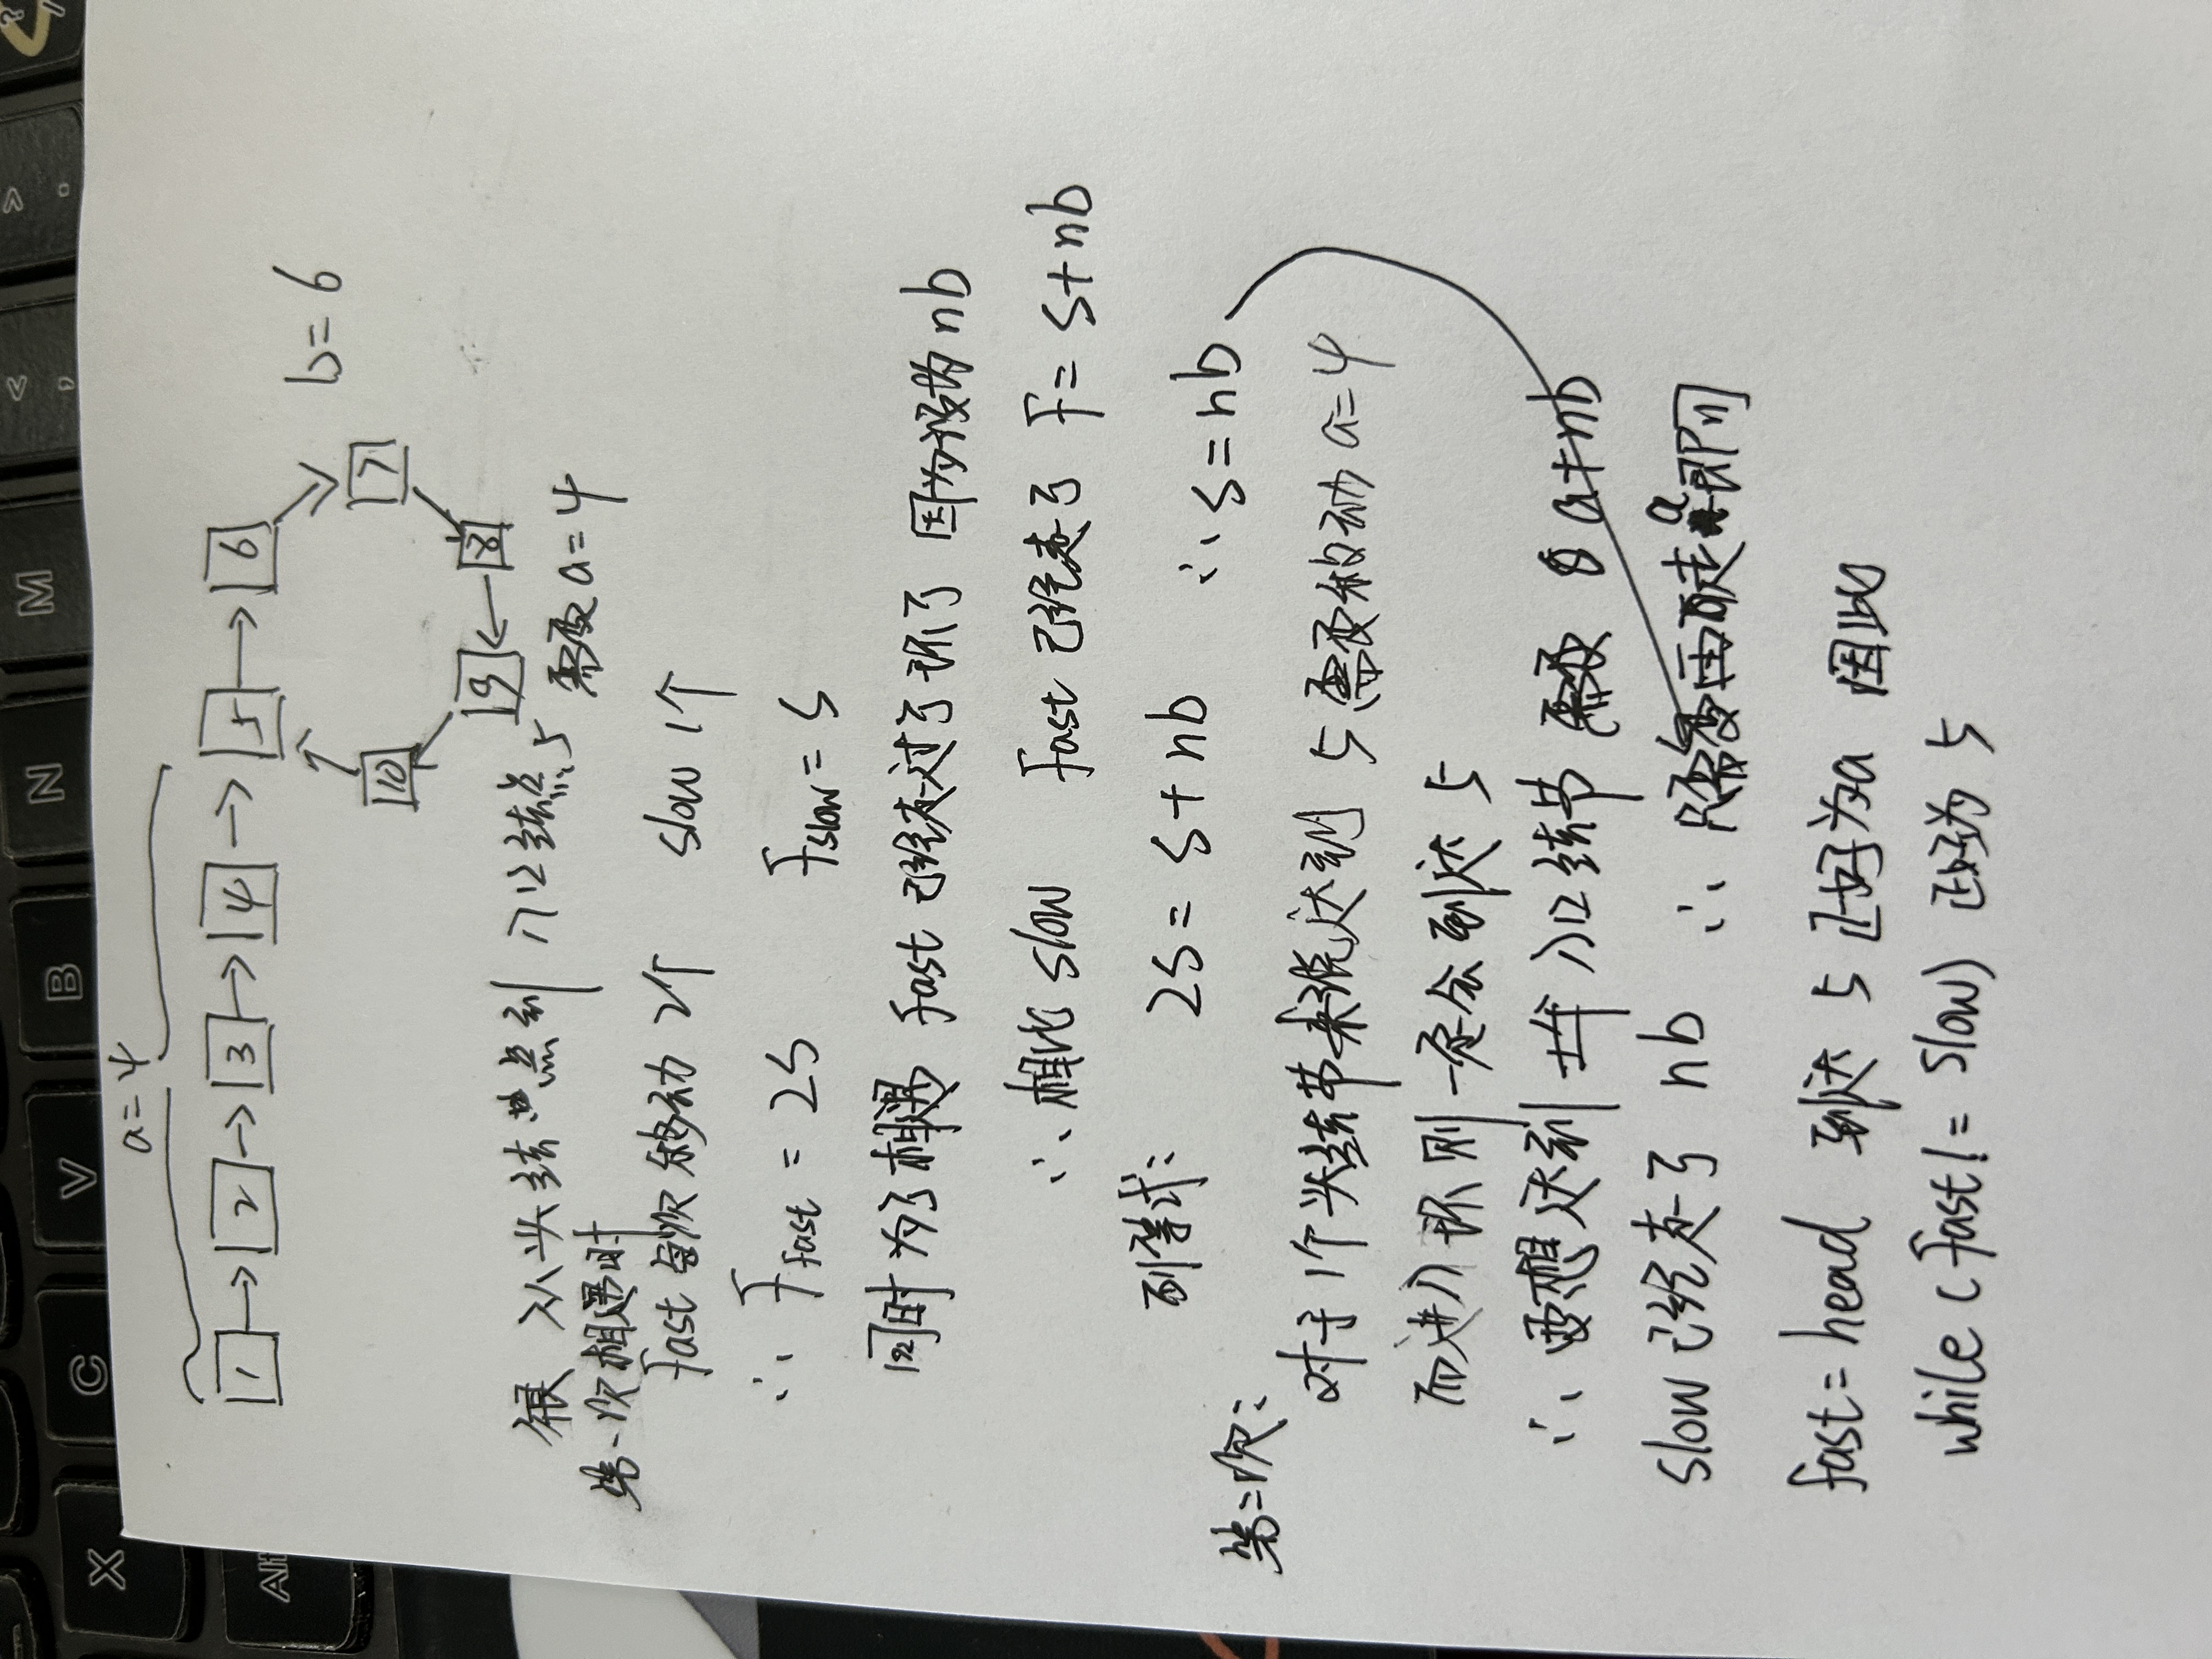 X C V B N M < , > . ? /
Alt
a=4
1 → 2 → 3 → 4 → 5 → 6
b=6
10 7
9 ← 8
从头结点到入口结点5 需要a=4
第一次相遇时
fast每次移动2个 slow 1个
∴ F fast = 2S F slow = S
同时为了相遇 fast 已经走过了环了 因为设为nb
∴ 相比 slow fast 已经走了 F= S+nb
列等式: 2S= S+nb ∴S=nb
第二次:
对于1个头结节来说达到 5需要移动a=4
而进入环则一定会到达 5
∴ 要想达到 入口结节 需要 a+nb
slow 已经走了 nb ∴ 只需要再走a即可
fast= head 到达 5 正好为a 因此
while (fast!= slow) 正好为 5